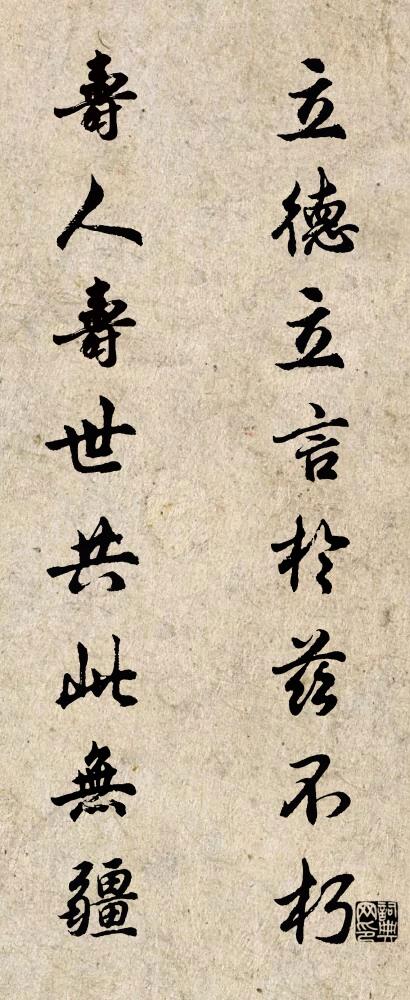 立德立言於茲不朽
壽人壽世共此無疆
詞典网印